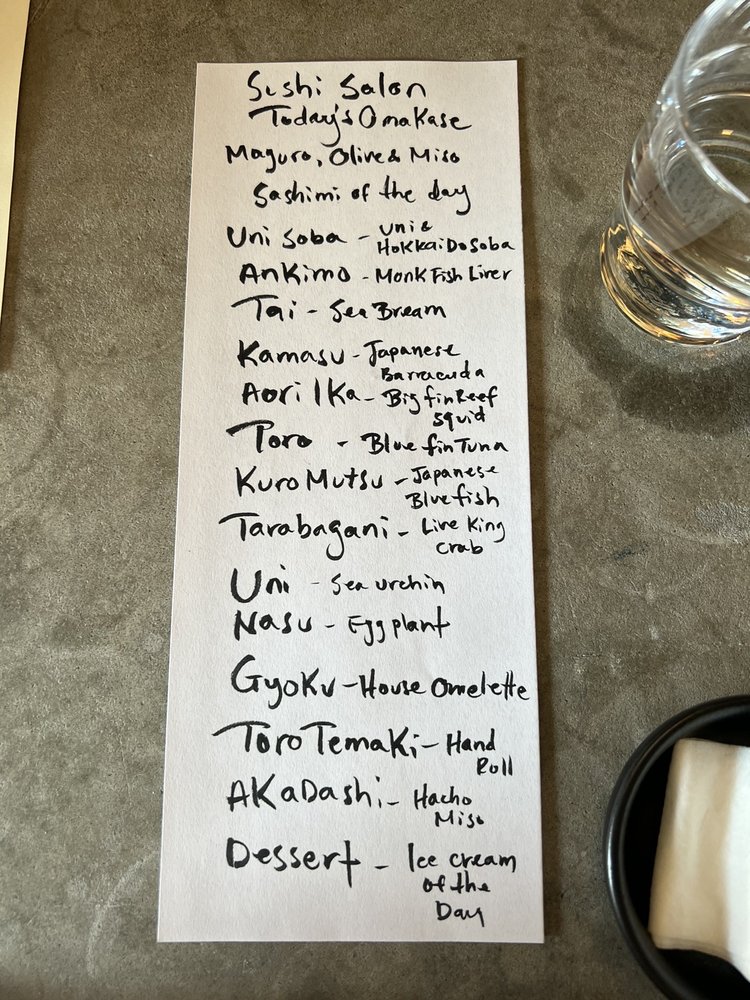 Sushi Salon
Today's Omakase
Maguro, Olive & Miso
Sashimi of the day
Uni Soba - Uni &
Hokkaido Soba
Ankimo - Monk Fish Liver
Tai - Sea Bream
Kamasu - Japanese
Barracuda
Aori Ika - Big fin Reef
Squid
Toro - Blue fin Tuna
Kuro Mutsu - Japanese
Blue fish
Tarabagani - Live King
Crab
Uni - Sea urchin
Nasu - Egg plant
Gyoku - House Omelette
Toro Temaki - Hand
Roll
AKaDashi - Hacho
Miso
Dessert - Ice cream
of the
Day